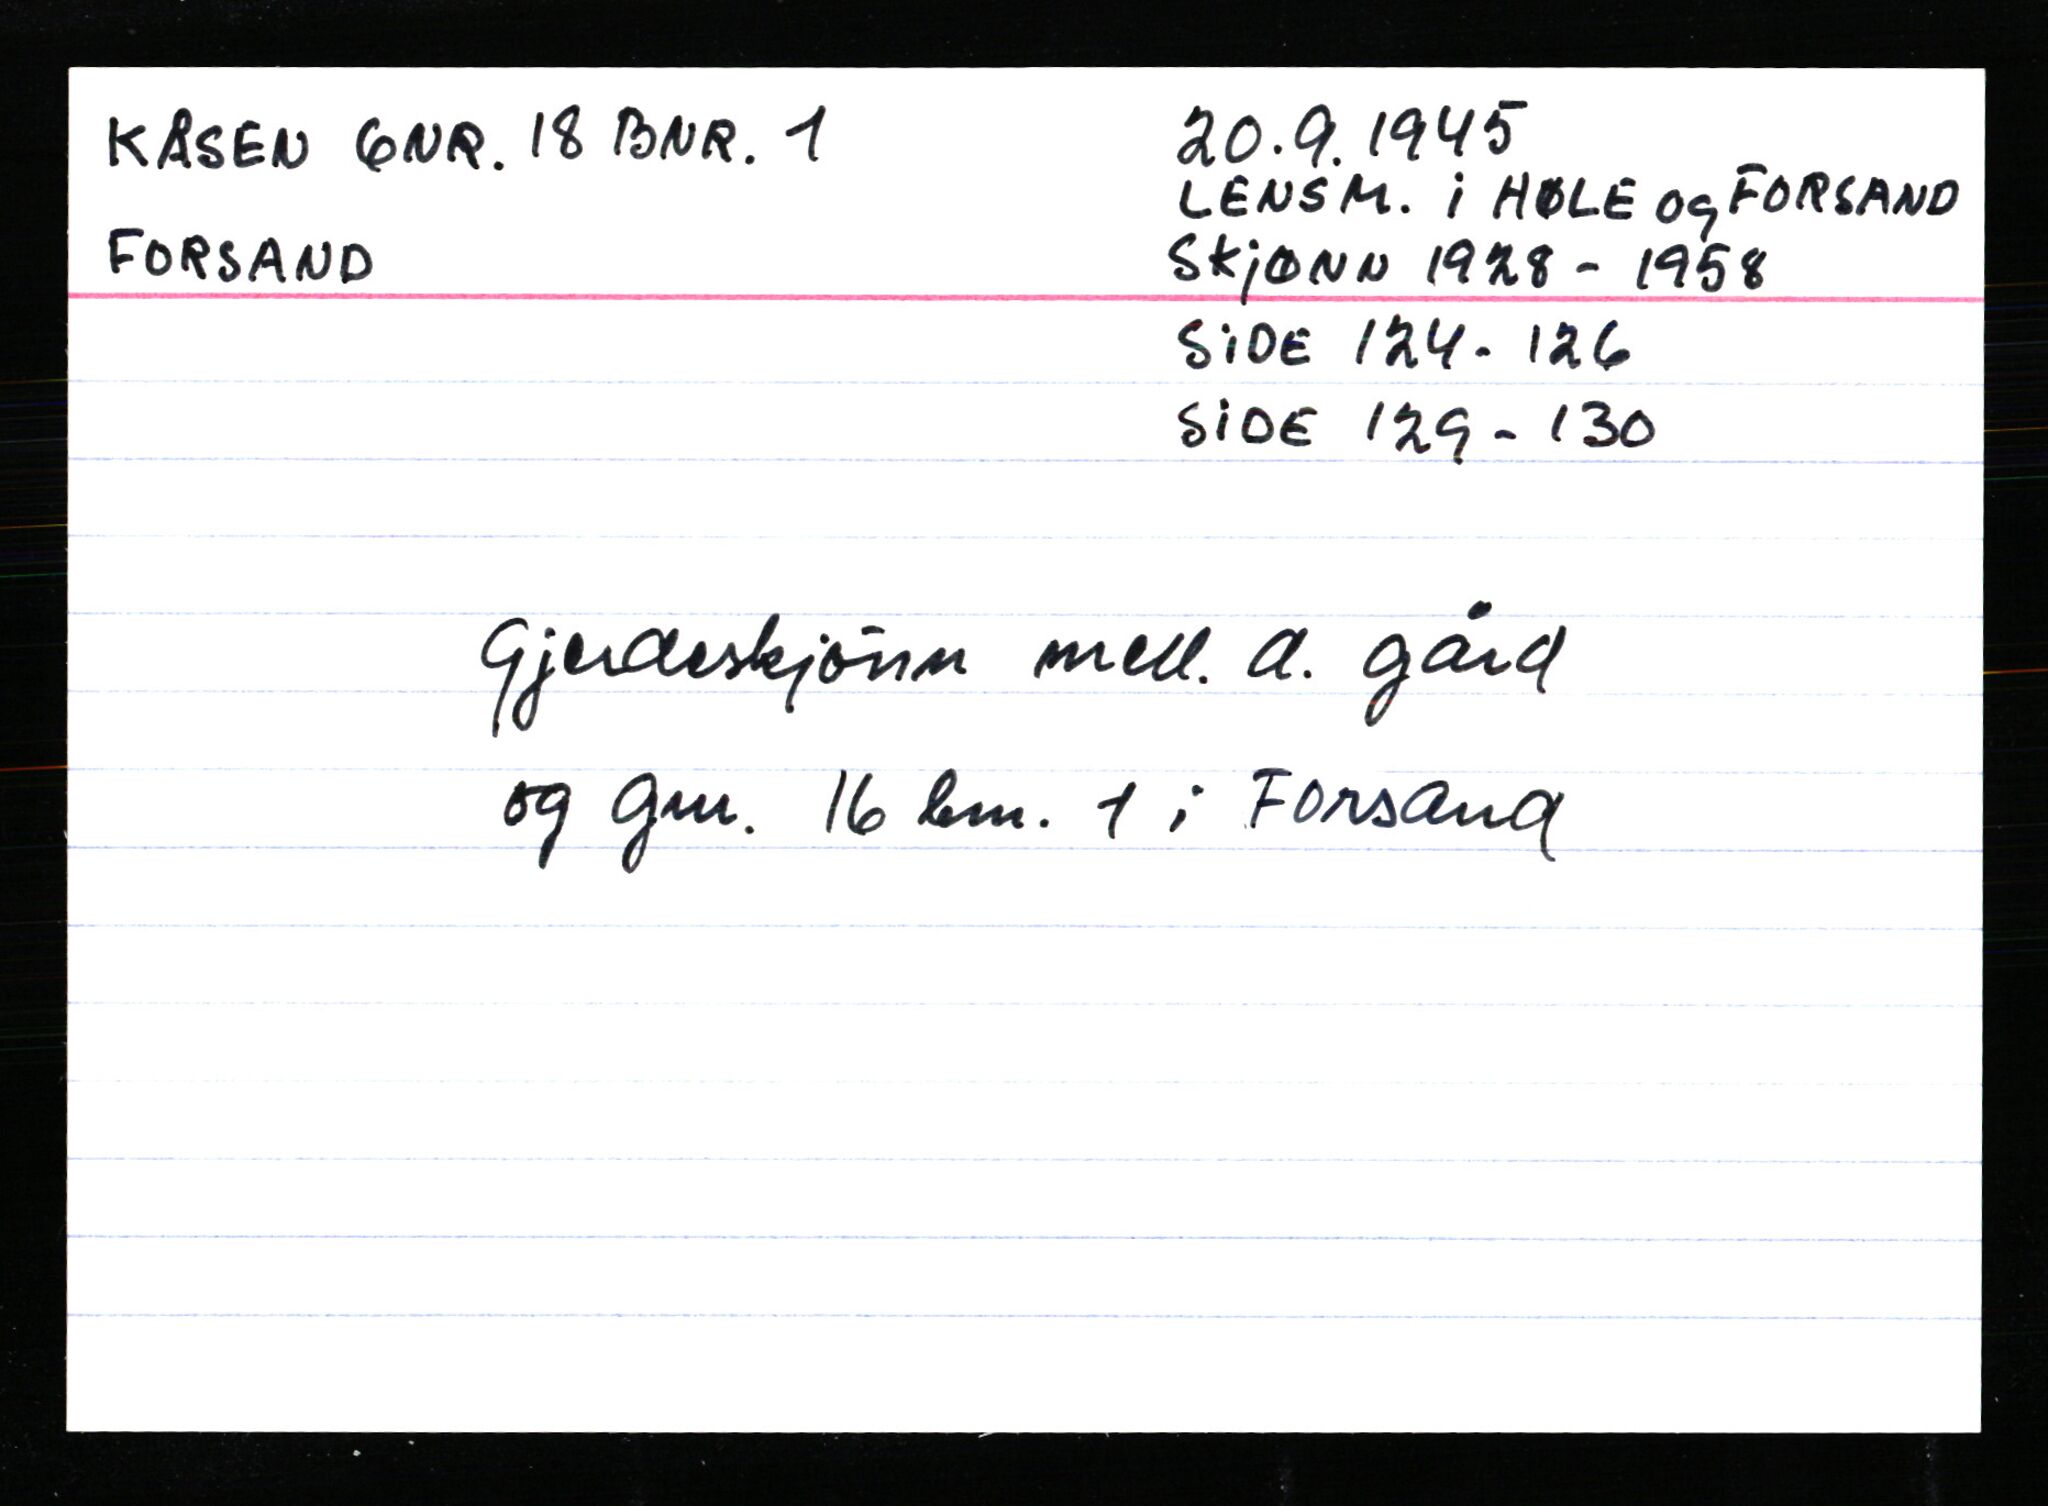 KÅSEN GNR. 18 BNR. 1
FORSAND
20.9.1945
LENSM. i HØLE og FORSAND
SKjØNN 1928 - 1958
SiDE 124 - 126
SiDE 129 - 130
Gjerdeskjønn mell. d. gård
og gnr. 16 bnr. 1 i Forsand